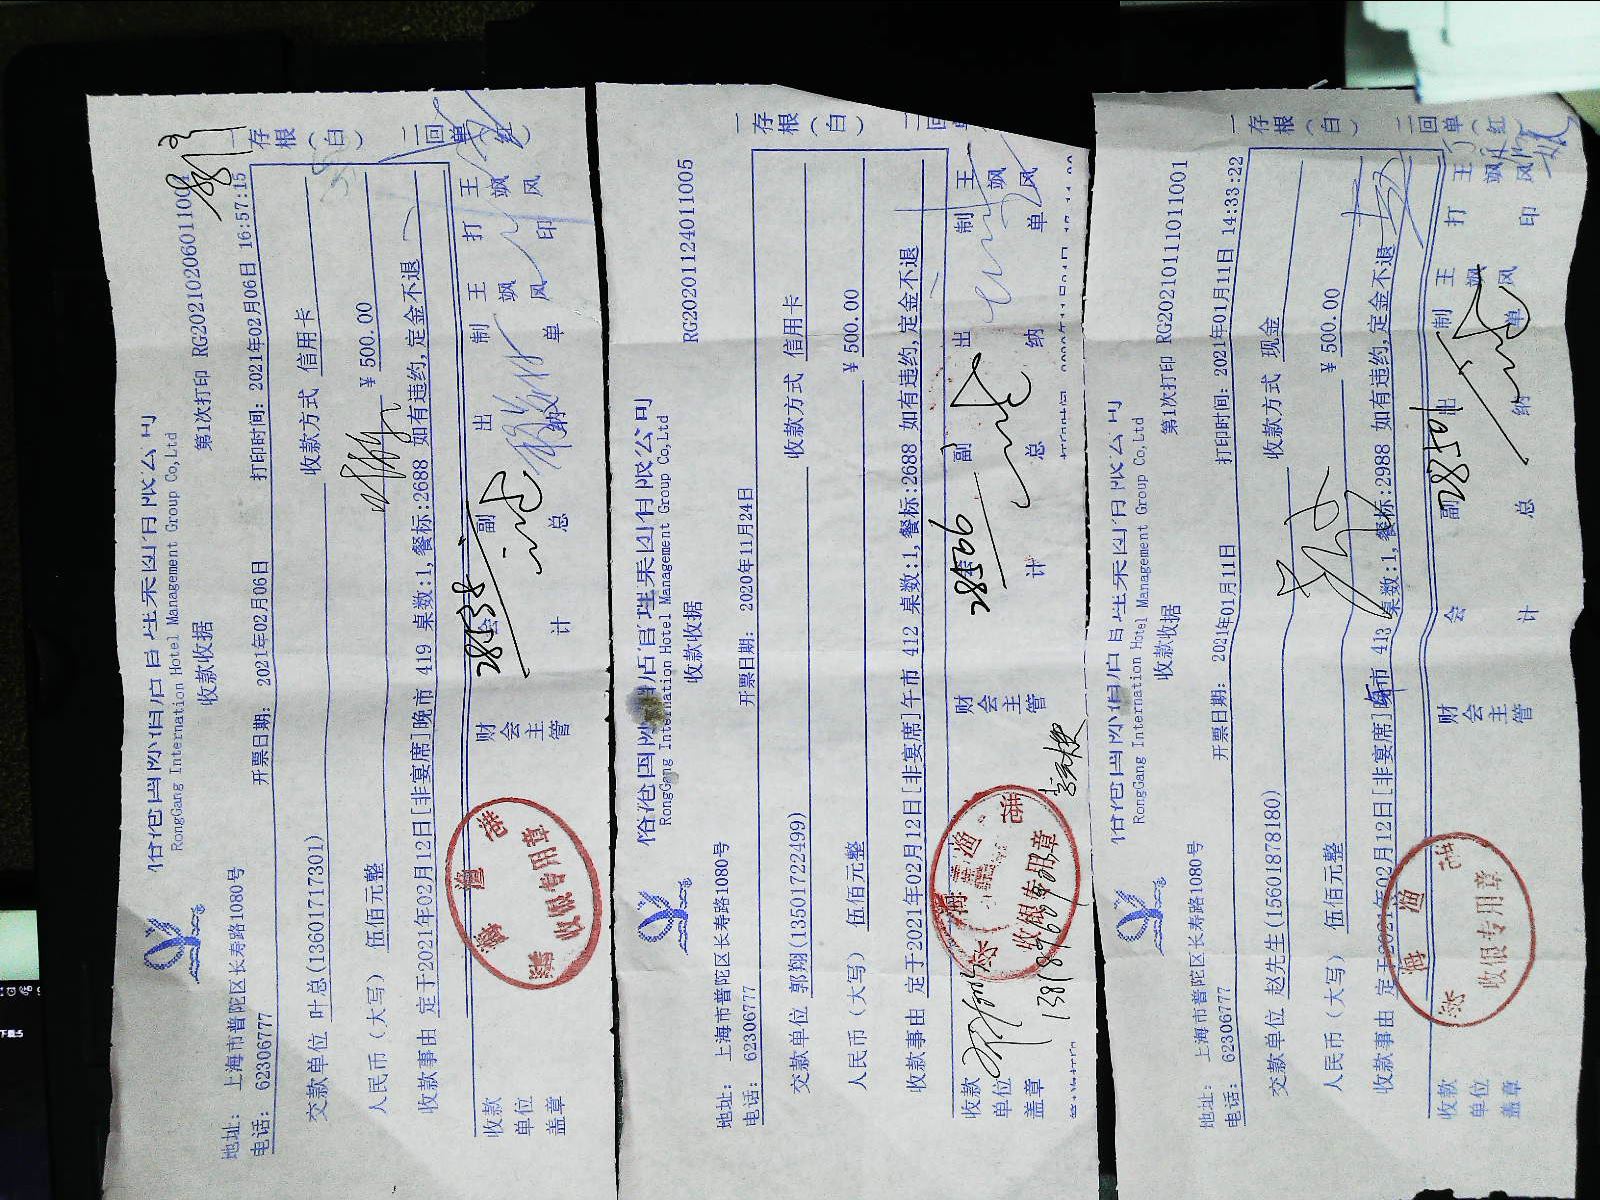 RongGang International Hotel Management Group Co,Ltd
收款收据
第1次打印 RG20210206011004
地址: 上海市普陀区长寿路1080号
电话: 62306777
开票日期: 2021年02月06日
打印时间: 2021年02月06日 16:57:15
交款单位 叶总(13601717301)
收款方式 信用卡
人民币（大写） 伍佰元整
¥ 500.00
收款事由 定于2021年02月12日[非宴席]晚市 419 桌数:1,餐标:2688 如有违约,定金不退
一存根（白）
二回单（红）
收款单位盖章
财会主管
会计
副总
出纳
制单
王飒风
打印
王飒风
28538
收银专用章
RongGang International Hotel Management Group Co,Ltd
收款收据
RG20201124011005
地址: 上海市普陀区长寿路1080号
电话: 62306777
开票日期: 2020年11月24日
交款单位 郭翔(13501722499)
收款方式 信用卡
人民币（大写） 伍佰元整
¥ 500.00
收款事由 定于2021年02月12日[非宴席]午市 412 桌数:1,餐标:2688 如有违约,定金不退
一存根（白）
二回单
收款单位盖章
财会主管
会计
副总
出纳
制单
王飒风
28506
收银专用章
RongGang International Hotel Management Group Co,Ltd
收款收据
第1次打印 RG20210111011001
地址: 上海市普陀区长寿路1080号
电话: 62306777
开票日期: 2021年01月11日
打印时间: 2021年01月11日 14:33:22
交款单位 赵先生(15601878180)
收款方式 现金
人民币（大写） 伍佰元整
¥ 500.00
收款事由 定于2021年02月12日[非宴席] 市 443 桌数:1,餐标:2988 如有违约,定金不退
一存根（白）
二回单（红）
收款单位盖章
财会主管
会计
副总
出纳
制单
王飒风
打印
王飒风
收银专用章